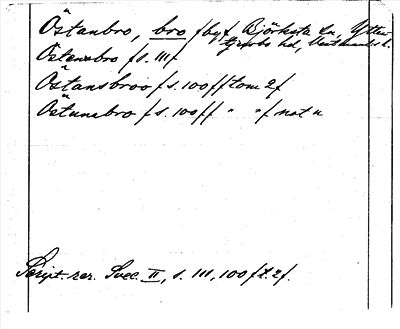 Östanbro, bro /by/, Björksta sn, Ytter-
tjurbo hd, Västmanlds l.
Östansbro /s. 111/
Östansbroo /s. 100/ /tom 2/
Östunabro /s. 100/ / " " / not u
Script. rer. Svec. II, s. 111, 100 / t. 2/.